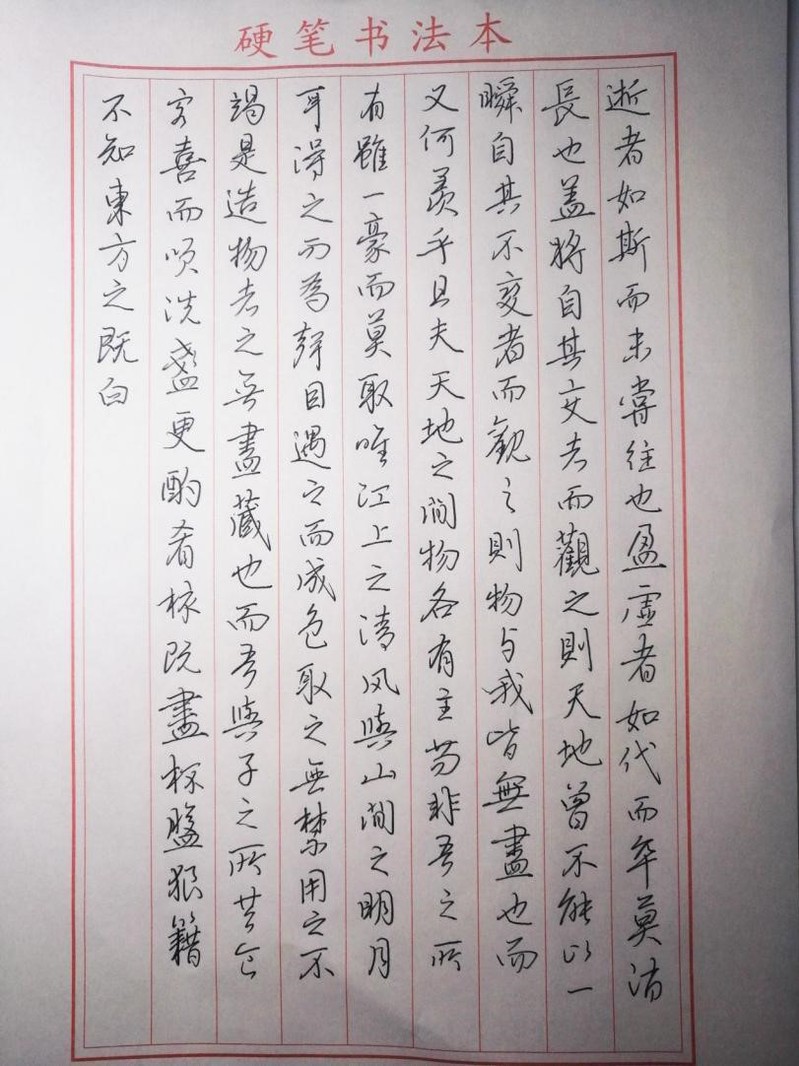 硬笔书法本
逝者如斯而未嘗往也盈虚者如代而卒莫消
長也盖將自其变者而觀之則天地曾不能以一
瞬自其不变者而觀之則物与我皆無盡也而
又何羨乎且夫天地之间物各有主苟非吾之所
有雖一豪而莫取唯江上之清风與山间之明月
耳得之而為聲目遇之而成色取之無禁用之不
竭是造物者之無盡藏也而吾與子之所共食
客喜而笑洗盏更酌肴核既盡杯盤狼籍
不知東方之既白